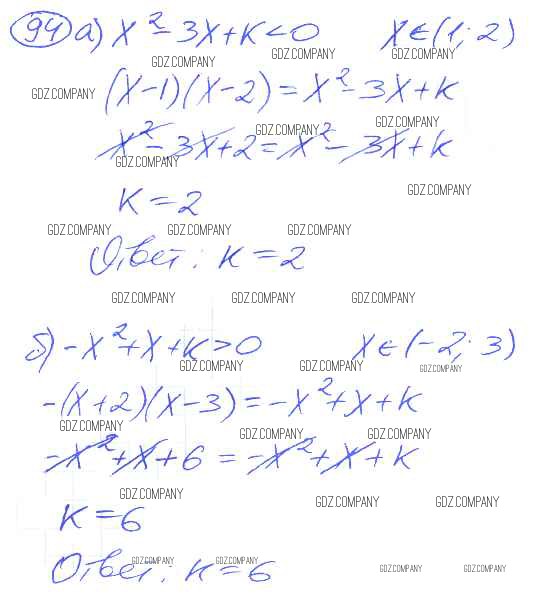 94 а) x² - 3x + k < 0 x ∈ (1; 2)
GDZ.COMPANY GDZ.COMPANY GDZ.COMPANY
GDZ.COMPANY (x-1)(x-2) = x² - 3x + k
GDZ.COMPANY GDZ.COMPANY
x² - 3x + 2 = x² - 3x + k
GDZ.COMPANY GDZ.COMPANY
k = 2
GDZ.COMPANY GDZ.COMPANY GDZ.COMPANY
Ответ: k = 2
GDZ.COMPANY GDZ.COMPANY GDZ.COMPANY
б) -x² + x + k > 0 x ∈ (-2; 3)
GDZ.COMPANY GDZ.COMPANY GDZ.COMPANY
-(x+2)(x-3) = -x² + x + k
GDZ.COMPANY GDZ.COMPANY GDZ.COMPANY
-x² + x + 6 = -x² + x + k
GDZ.COMPANY GDZ.COMPANY GDZ.COMPANY
k = 6
GDZ.COMPANY GDZ.COMPANY GDZ.COMPANY GDZ.COMPANY
Ответ: k = 6